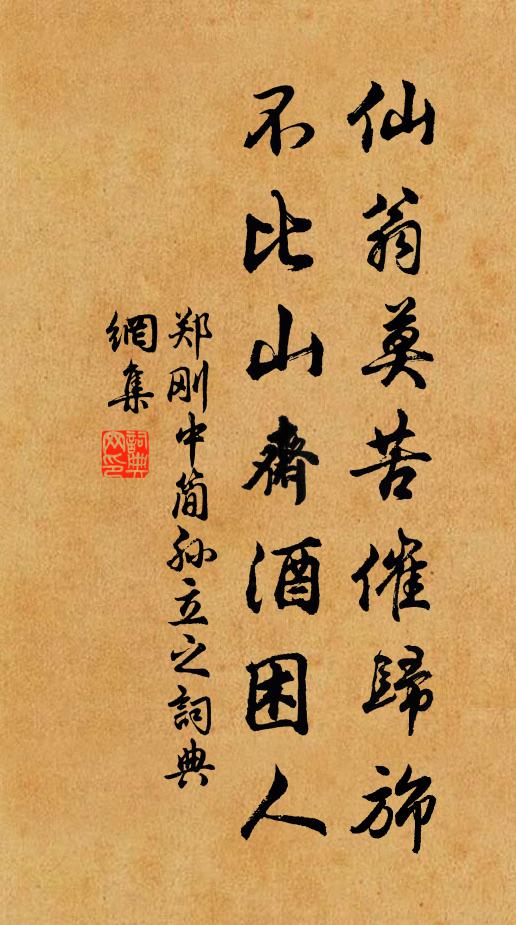 仙翁莫苦催歸旆
不比山齋酒困人
郑刚中简孙立之詞典
網集
詞典网印